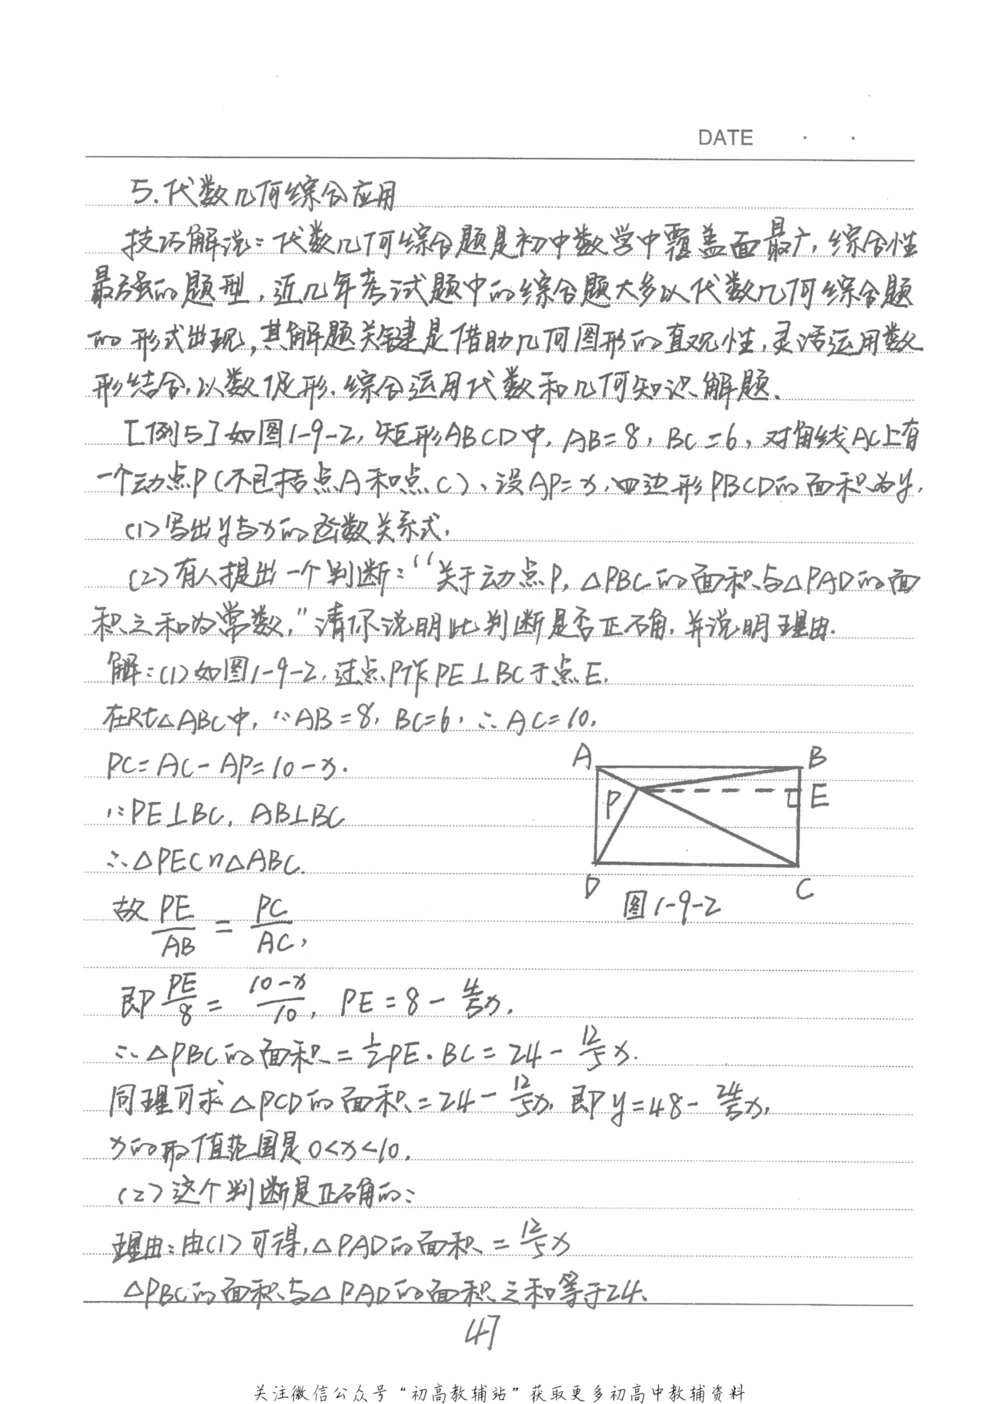 DATE · ·
5.代数几何综合应用
技巧解说:代数几何综合题是初中数学中覆盖面最广,综合性
最强的题型,近几年考试题中的综合题大多以代数几何综合题
的形式出现,其解题关键是借助几何图形的直观性,灵活运用数
形结合,以数促形.综合运用代数和几何知识解题.
[例5]如图1-9-2,矩形ABCD中,AB=8,BC=6,对角线AC上有
一个动点P(不包括点A和点C)、设AP=x,四边形PBCD的面积为y.
(1)写出y与x的函数关系式.
(2)有人提出一个判断:“关于动点P,△PBC的面积与△PAD的面
积之和为常数,”请你说明此判断是否正确,并说明理由.
解:(1)如图1-9-2,过点P作PE⊥BC于点E.
在Rt△ABC中,∵AB=8,BC=6,∴AC=10.
PC=AC-AP=10-x.
∵PE⊥BC,AB⊥BC
∴△PEC∽△ABC.
故 PE/AB = PC/AC,
即 PE/8 = (10-x)/10, PE=8-4/5x.
∴△PBC的面积=1/2PE·BC=24-12/5x.
同理可求△PCD的面积=24-12/5x,即y=48-24/5x,
x的取值范围是0<x<10.
(2)这个判断是正确的:
理由:由(1)可得,△PAD的面积=12/5x
△PBC的面积与△PAD的面积之和等于24.
A
B
P
E
D
C
图1-9-2
47
关注微信公众号“初高教辅站”获取更多初高中教辅资料